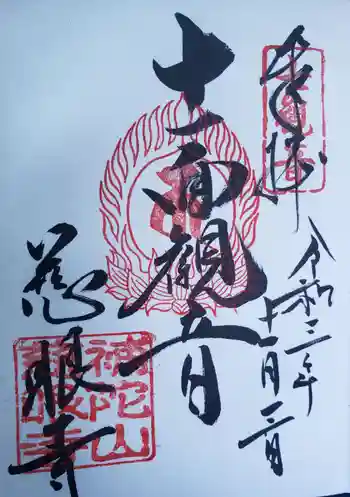 奉拝
令和三年
十一月三日
十一面観世音
慈眼寺
補陀山
慈眼寺